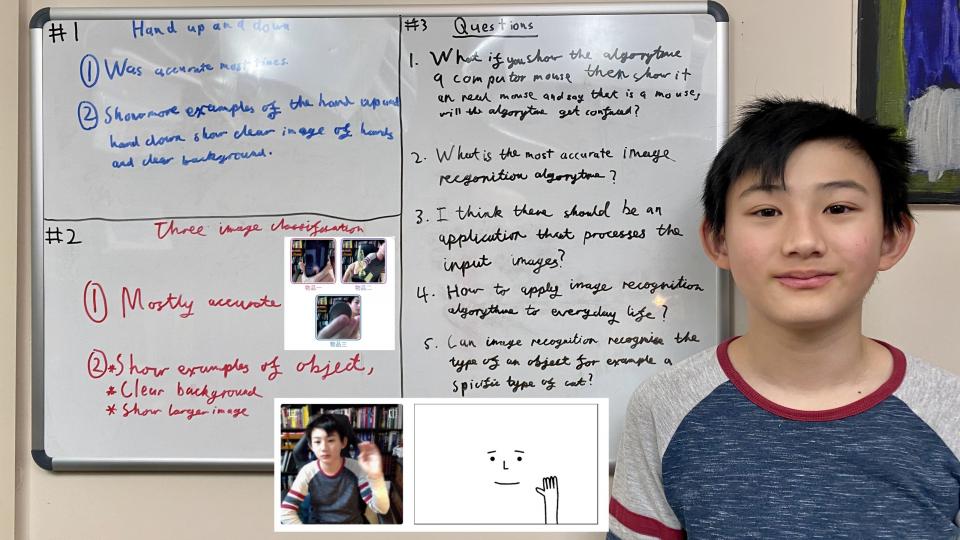 #1 Hand up and down
① Was accurate most times.
② Show more examples of the hand up and
hand down show clear image of hands
and clear background.
#2 Three image classification
① Mostly accurate
② * Show examples of object,
* Clear background
* Show larger image
物品一 物品二
物品三
#3 Questions
1. What if you show the algorytme
a computor mouse then show it
an real mouse and say that is a mouse,
will the algorytme get confused?
2. What is the most accurate image
recgonition algorytme?
3. I think there should be an
application that processes the
input images?
4. How to apply image recognition
algorythme to everyday life?
5. Can image recognition recognise the
type of an object for example a
spicific type of cat?